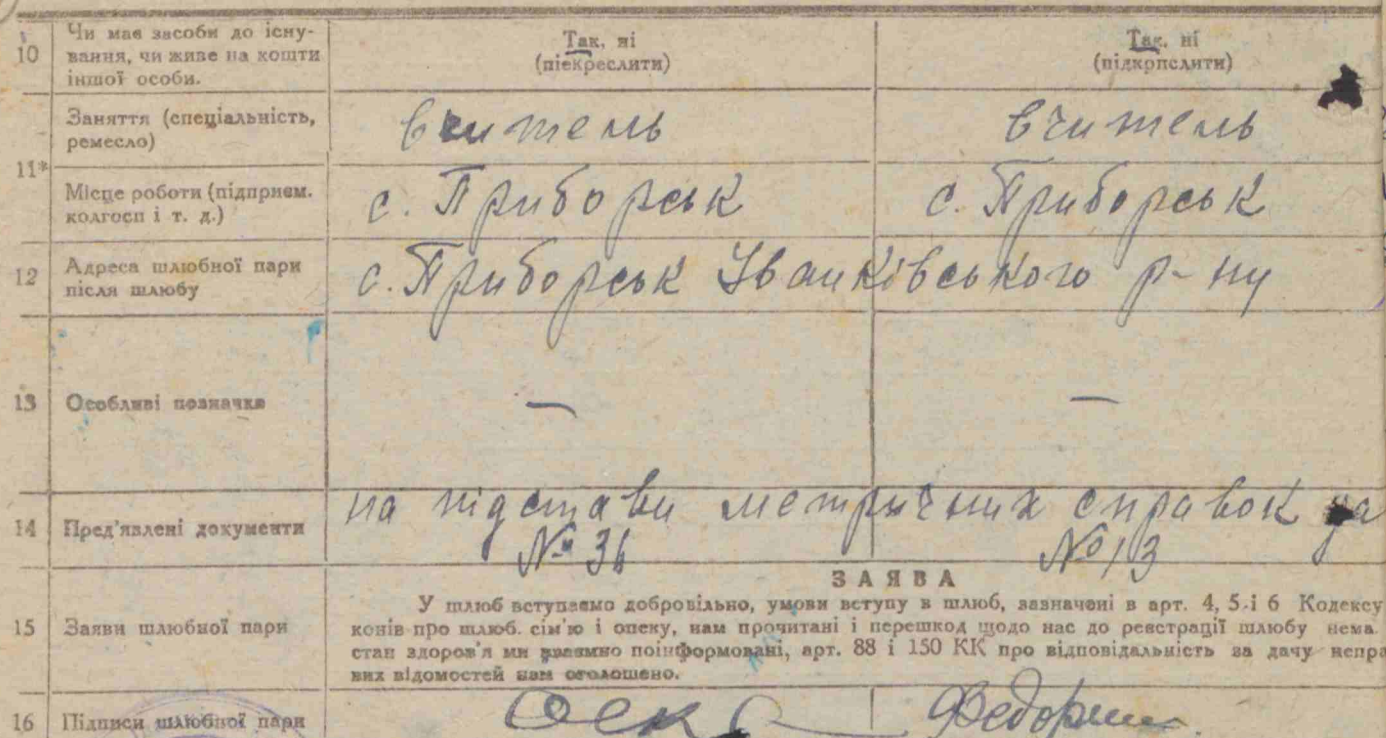 10 Чи має засоби до існу-
вання, чи живе на кошти
іншої особи.
Так, ні
(піекреслити)
Так, ні
(підкрпслити)
11*
Заняття (спеціальність,
ремесло)
вчитель
вчитель
Місце роботи (підприєм.
колгосп і т. д.)
с. Приборськ
с. Приборськ
12 Адреса шлюбної пари
після шлюбу
с. Приборськ Іванківського р-ну
13 Особливі позначки
—
—
14 Пред'явлені документи
на підстави метричних справок за
№ 36
№ 13
15 Заяви шлюбної пари
ЗАЯВА
У шлюб вступаємо добровільно, умови вступу в шлюб, зазначені в арт. 4, 5 і 6 Кодексу
конів про шлюб. сім'ю і опеку, нам прочитані і перешкод щодо нас до реєстрації шлюбу нема.
стан здоров'я ми взаємно поінформовані, арт. 88 і 150 КК про відповідальність за дачу непра
вих відомостей нам оголошено.
16 Підписи шлюбної пари